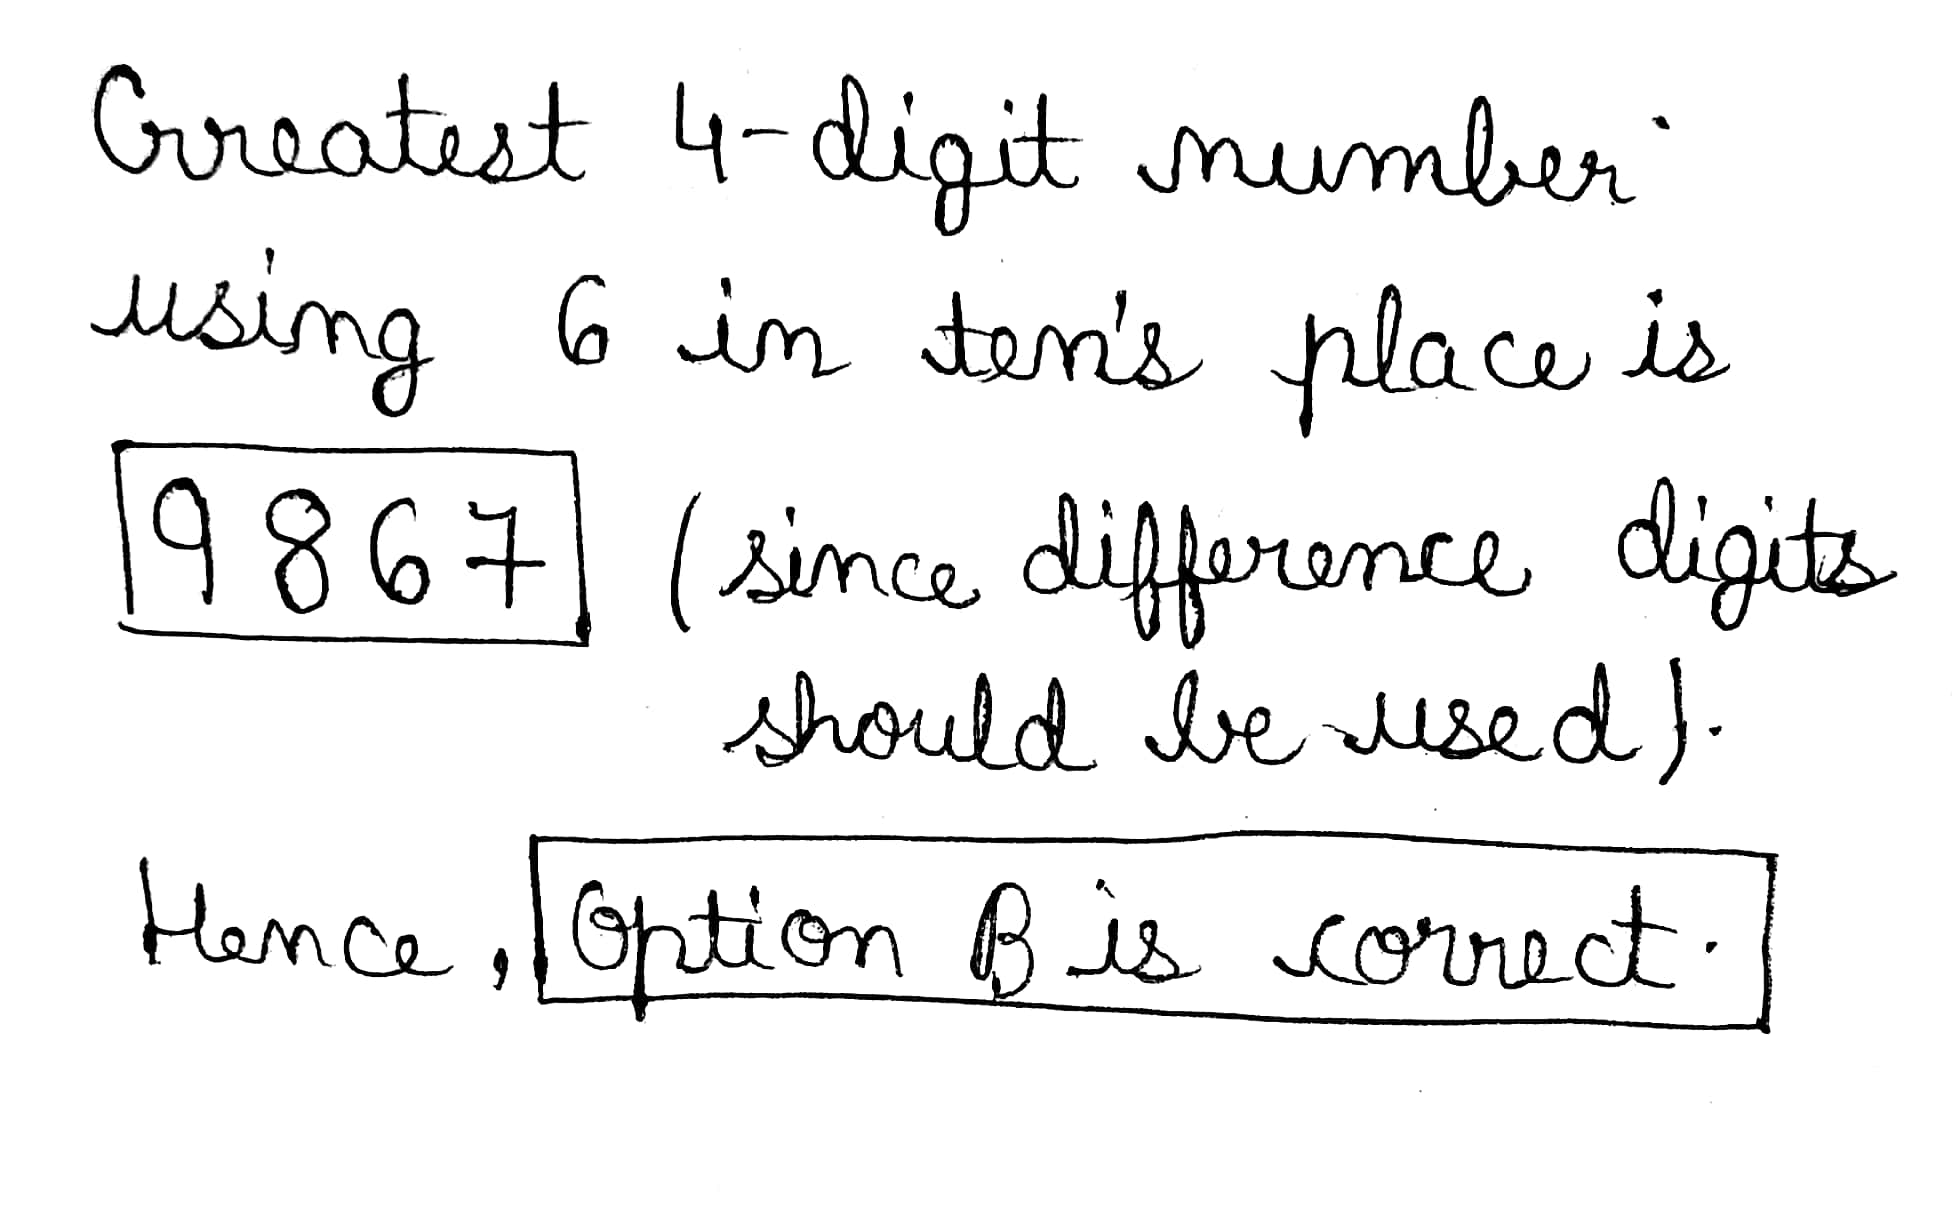 Greatest 4-digit number
using 6 in ten's place is
9867 (since difference digits
should be used).
Hence, Option B is correct.